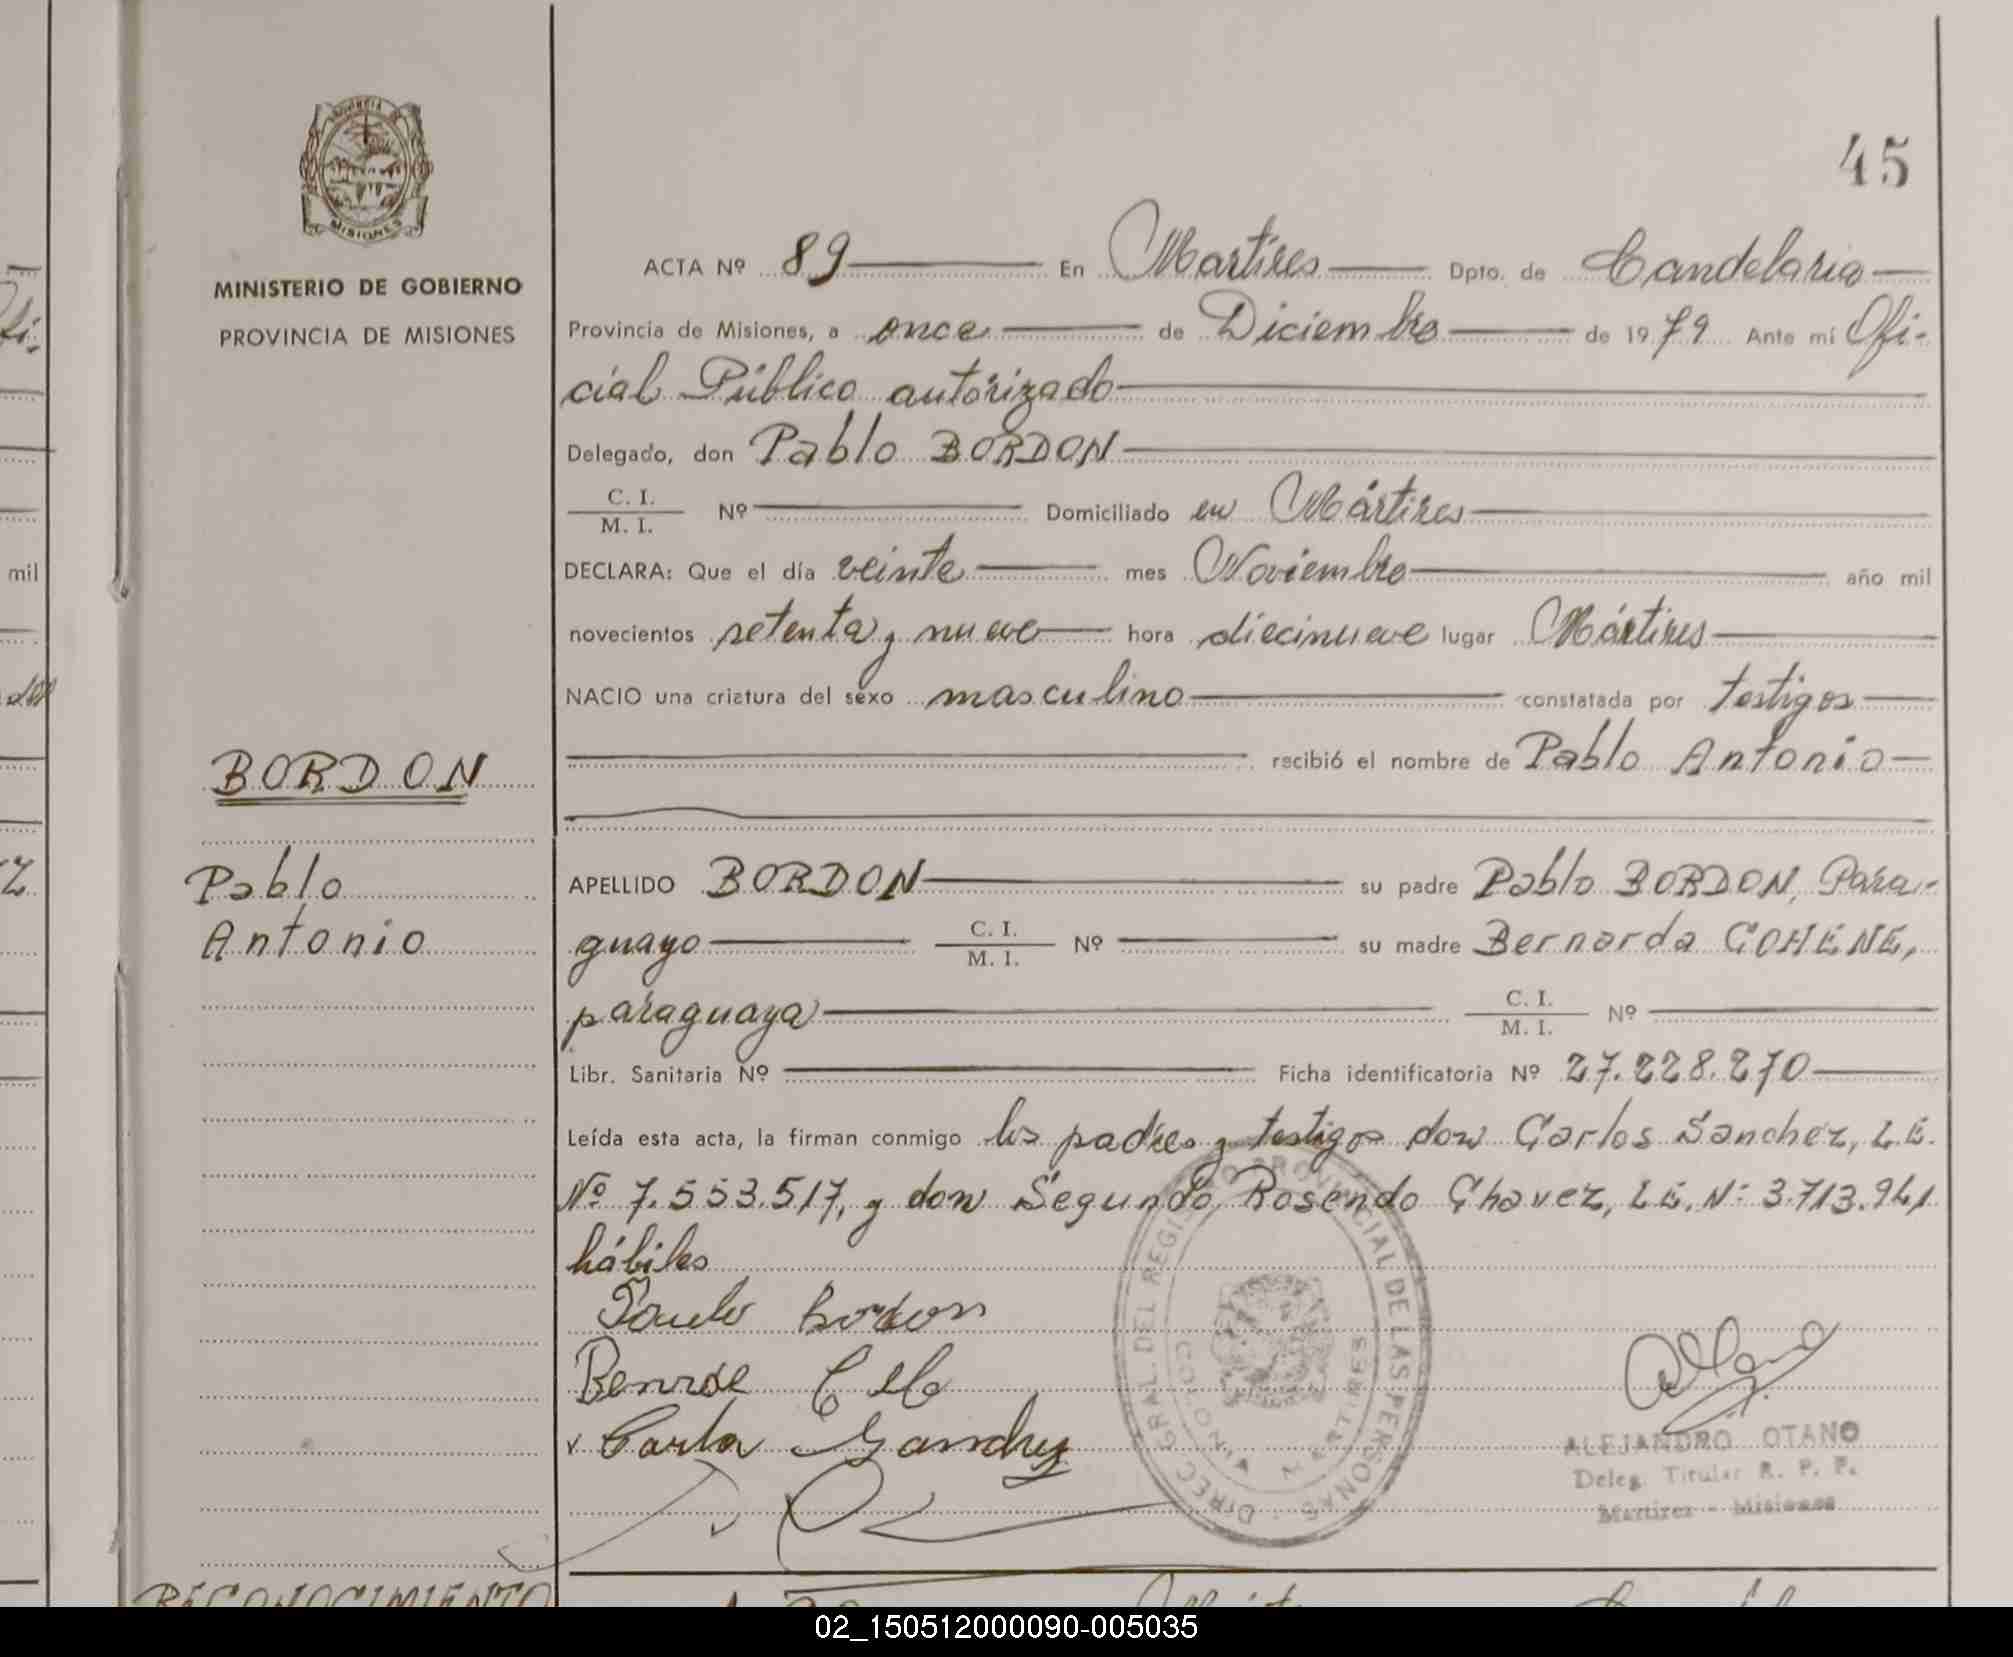 45
MISIONES
MINISTERIO DE GOBIERNO
PROVINCIA DE MISIONES
BORDON
Pablo
Antonio
RECONOCIMIENTO
ACTA Nº 89 En Martires Dpto. de Candelaria
Provincia de Misiones, a once de Diciembre de 1979 Ante mí Ofi-
cial Público autorizado
Delegado, don Pablo BORDON
C. I.
M. I. Nº Domiciliado en Mártires
DECLARA: Que el día veinte mes Noviembre año mil
novecientos setenta y nueve hora diecinueve lugar Mártires
NACIO una criatura del sexo masculino constatada por testigos
recibió el nombre de Pablo Antonio
APELLIDO BORDON su padre Pablo BORDON, Para-
guayo C. I. M. I. Nº su madre Bernarda COHENE,
paraguaya C. I. M. I. Nº
Libr. Sanitaria Nº Ficha identificatoria Nº 27.228.270
Leída esta acta, la firman conmigo los padres y testigos don Carlos Sanchez, L.E.
Nº 7.553.517, y don Segundo Rosendo Chavez, L.E. Nº 3.713.941
hábiles
Bordon
Carlos Sanchez
DIREC. GRAL. DEL REGISTRO PROVINCIAL DE LAS PERSONAS
COLONIA MARTIRES
ALEJANDRO OTANO
Deleg. Titular R. P. P.
Martires - Misiones
mil
02_150512000090-005035